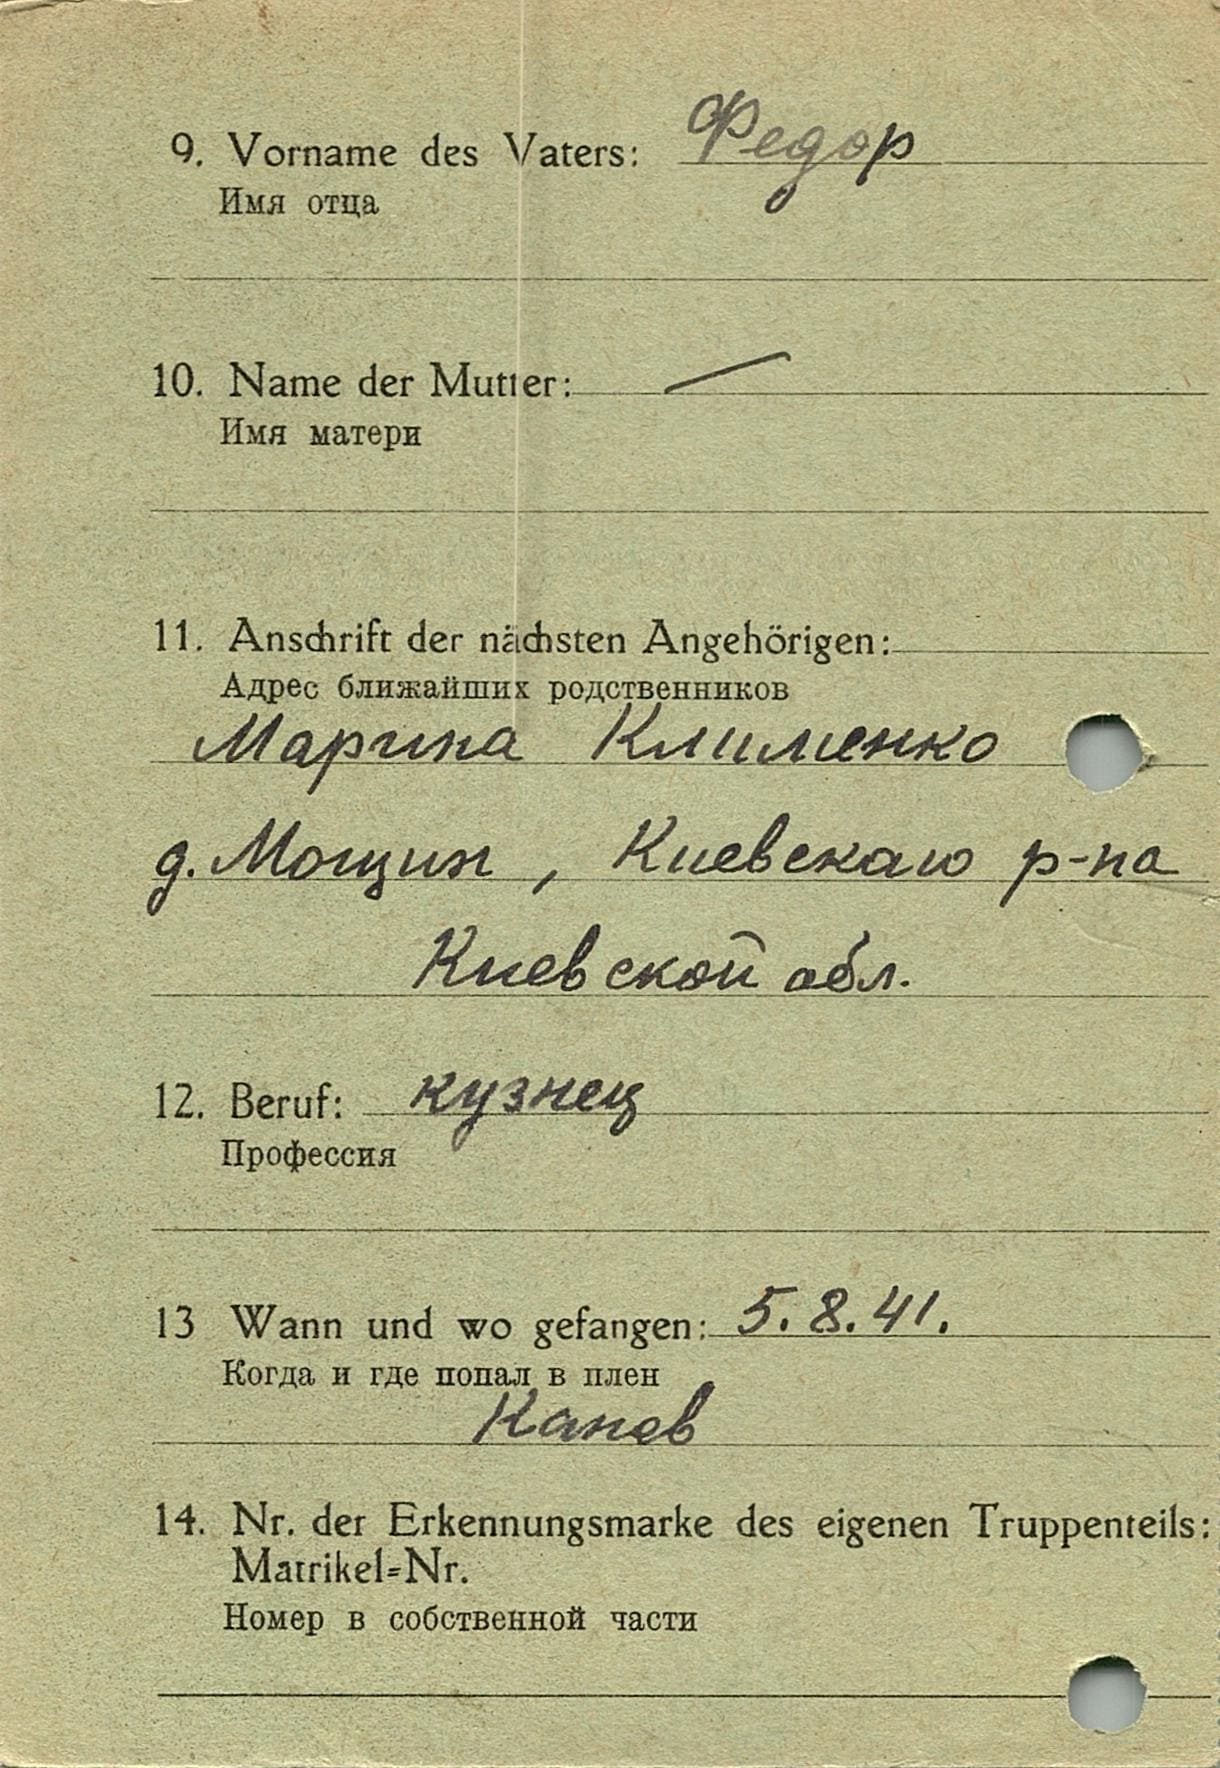 9. Vorname des Vaters: Федор
Имя отца
10. Name der Mutter:
Имя матери
11. Anschrift der nächsten Angehörigen:
Адрес ближайших родственников
Марина Клименко
д. Мощин, Киевскаго р-на
Киевской обл.
12. Beruf: кузнец
Профессия
13 Wann und wo gefangen: 5.8.41.
Когда и где попал в плен
Канев
14. Nr. der Erkennungsmarke des eigenen Truppenteils:
Matrikel=Nr.
Номер в собственной части